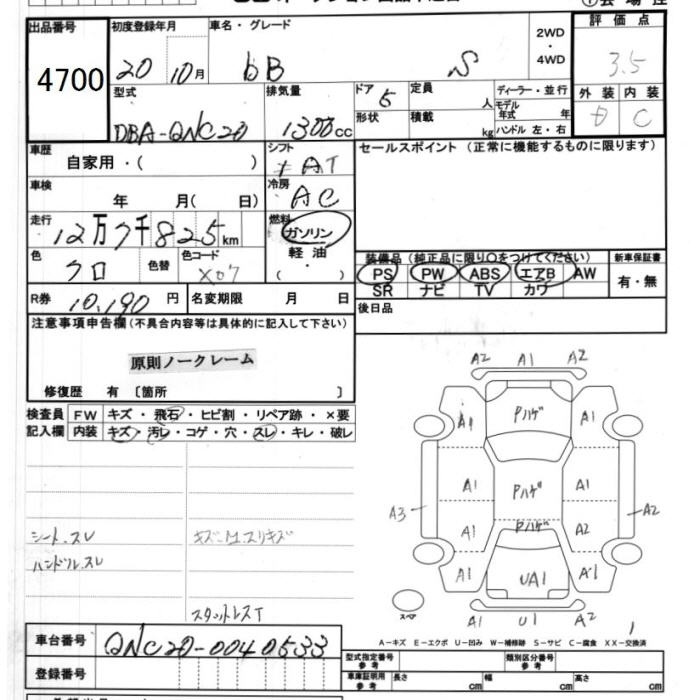 出品番号
4700
初度登録年月
20 10月
車名・グレード
bB S
2WD
・
4WD
評価点
3.5
外装 内装
C
型式
DBA-QNC20
排気量
1300cc
ドア
5
形状
定員
人
積載
kg
ディーラー・並行
モデル
年式 年
ハンドル 左・右
車歴
自家用・( )
シフト
AT
セールスポイント (正常に機能するものに限ります)
車検
年 月( 日)
冷房
AC
走行
12万7千825km
燃料
ガソリン
軽油
( ・ )
色
クロ
色替
色コード
X07
装備品 (純正品に限り○をつけてください)
PS PW ABS エアB AW
SR ナビ TV カワ
新車保証書
有・無
R券 10,190円
名変期限 月 日
後日品
注意事項申告欄(不具合内容等は具体的に記入して下さい)
原則ノークレーム
修復歴 有 〔箇所 〕
検査員
記入欄
FW キズ・飛石・ヒビ割・リペア跡・×要
内装 キズ・汚レ・コゲ・穴・スレ・キレ・破レ
シートスレ
ハンドルスレ
スタットレスT
A2 A1 A2
A1 Pハゲ A1
A3 A1 Pハゲ A1 A2
A1 Pハゲ A2
A1 UA1 A1
スペア
A1 U1 A2
A－キズ E－エクボ U－凹み W－補修跡 S－サビ C－腐食 XX－交換済
車台番号 QNC20-0040533
登録番号
型式指定番号
参考
類別区分番号
参考
車庫証明用
参考
長さ cm 幅 cm 高さ cm